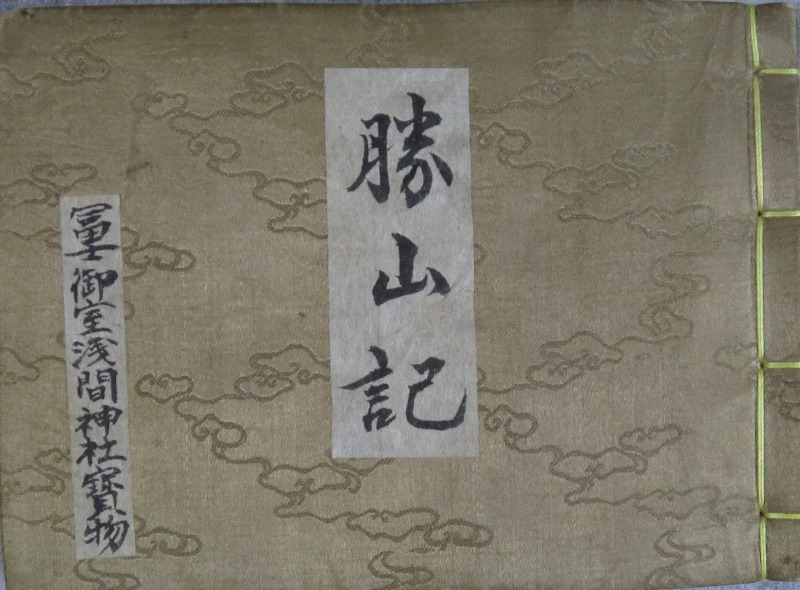 勝山記
冨士御室淺間神社寳物